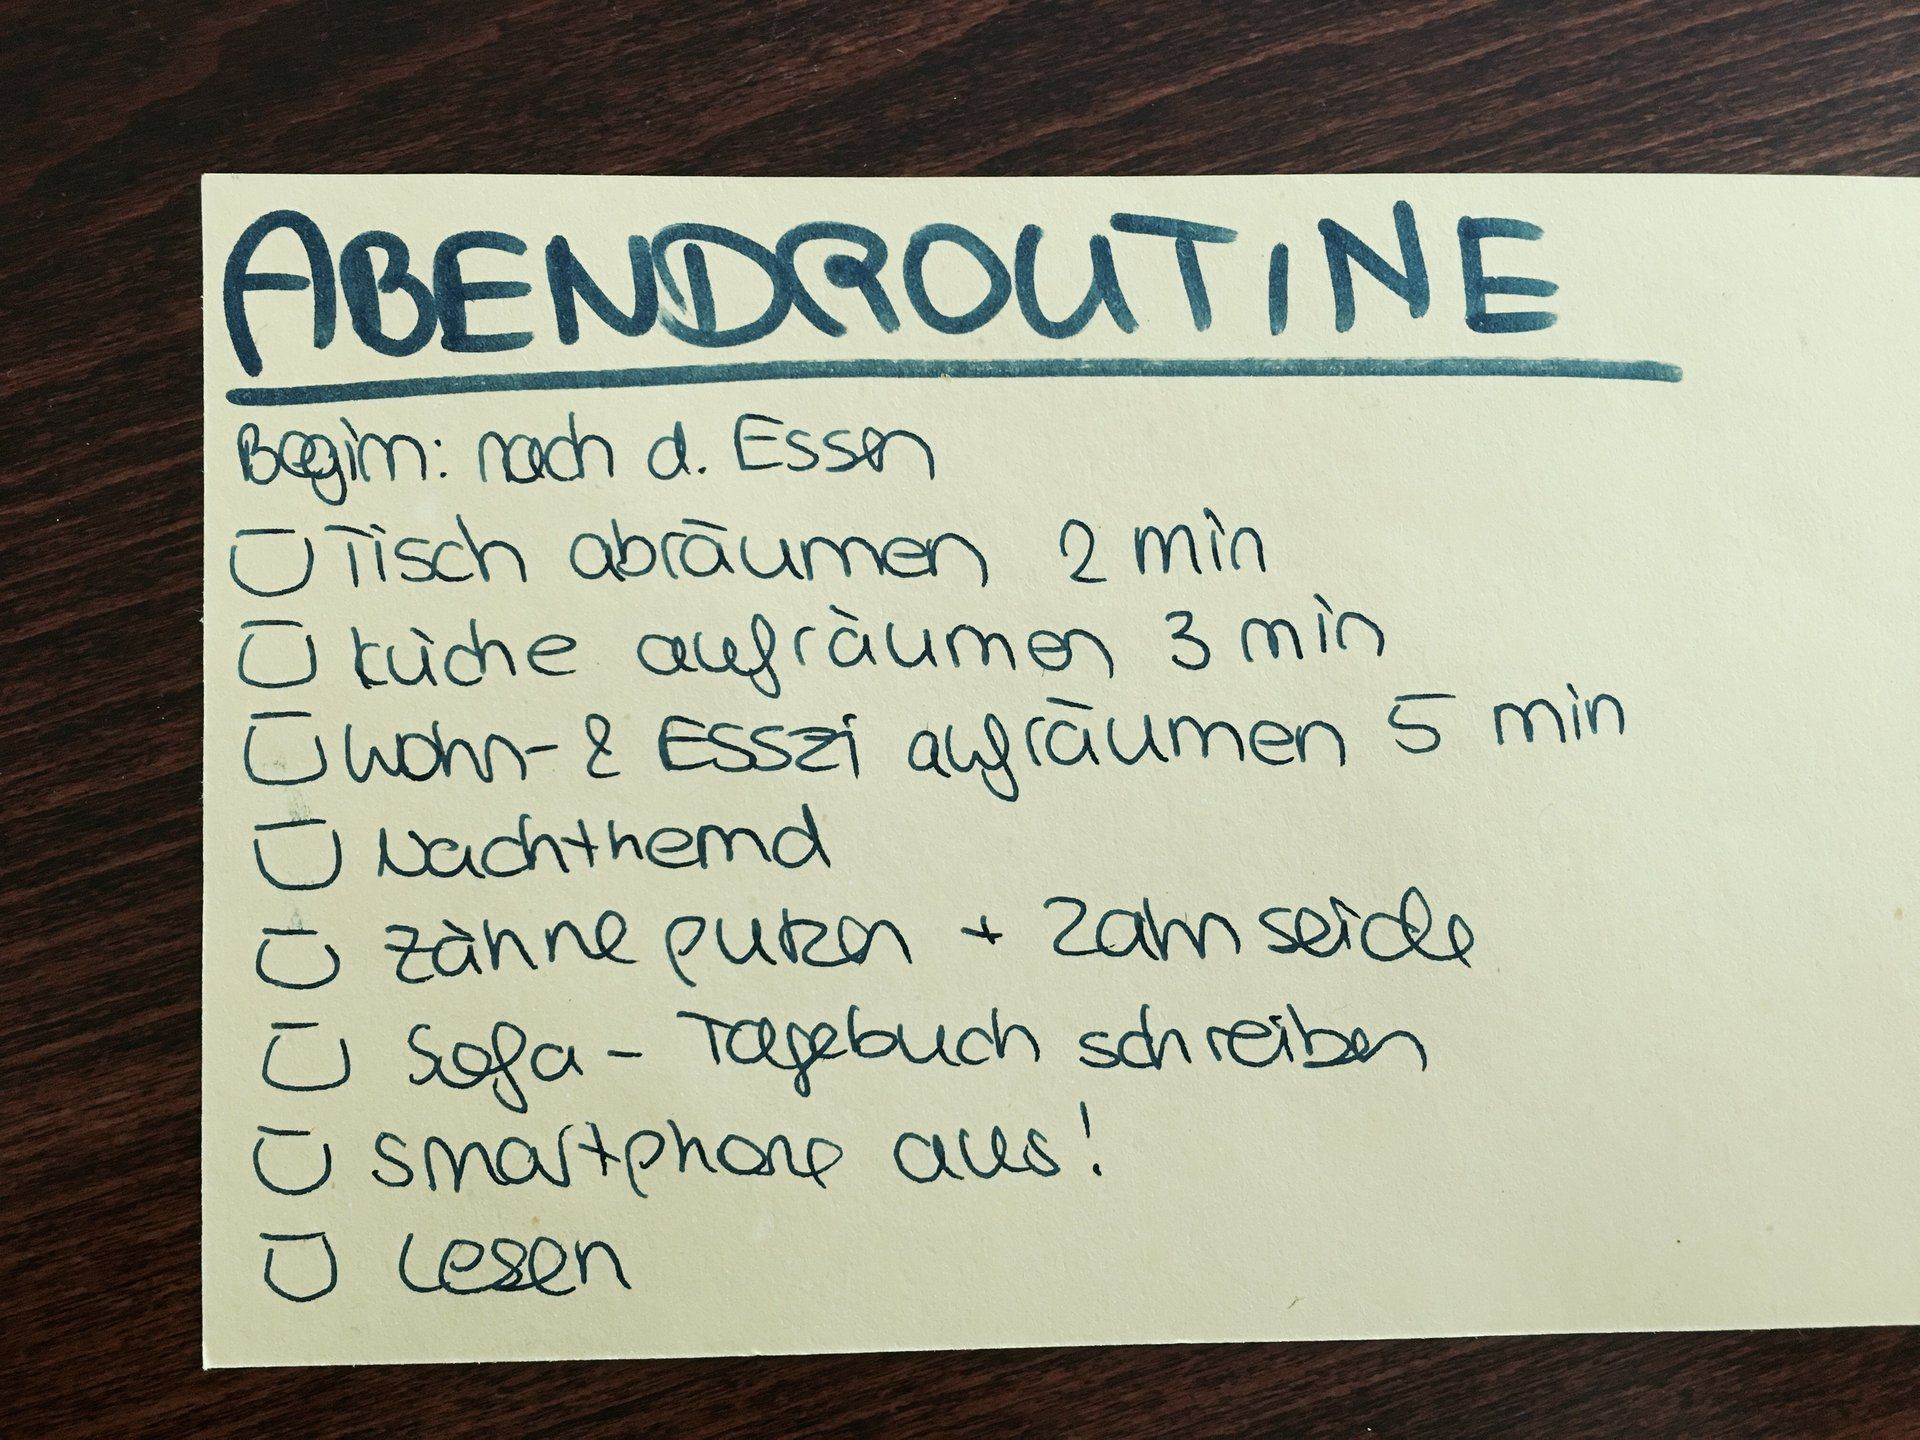 ABENDROUTINE
Beginn: nach d. Essen
Tisch abräumen 2 min
Küche aufräumen 3 min
Wohn- & Esszi aufräumen 5 min
Nachthemd
Zähne putzen + Zahnseide
Sofa - Tagebuch schreiben
Smartphone aus!
Lesen